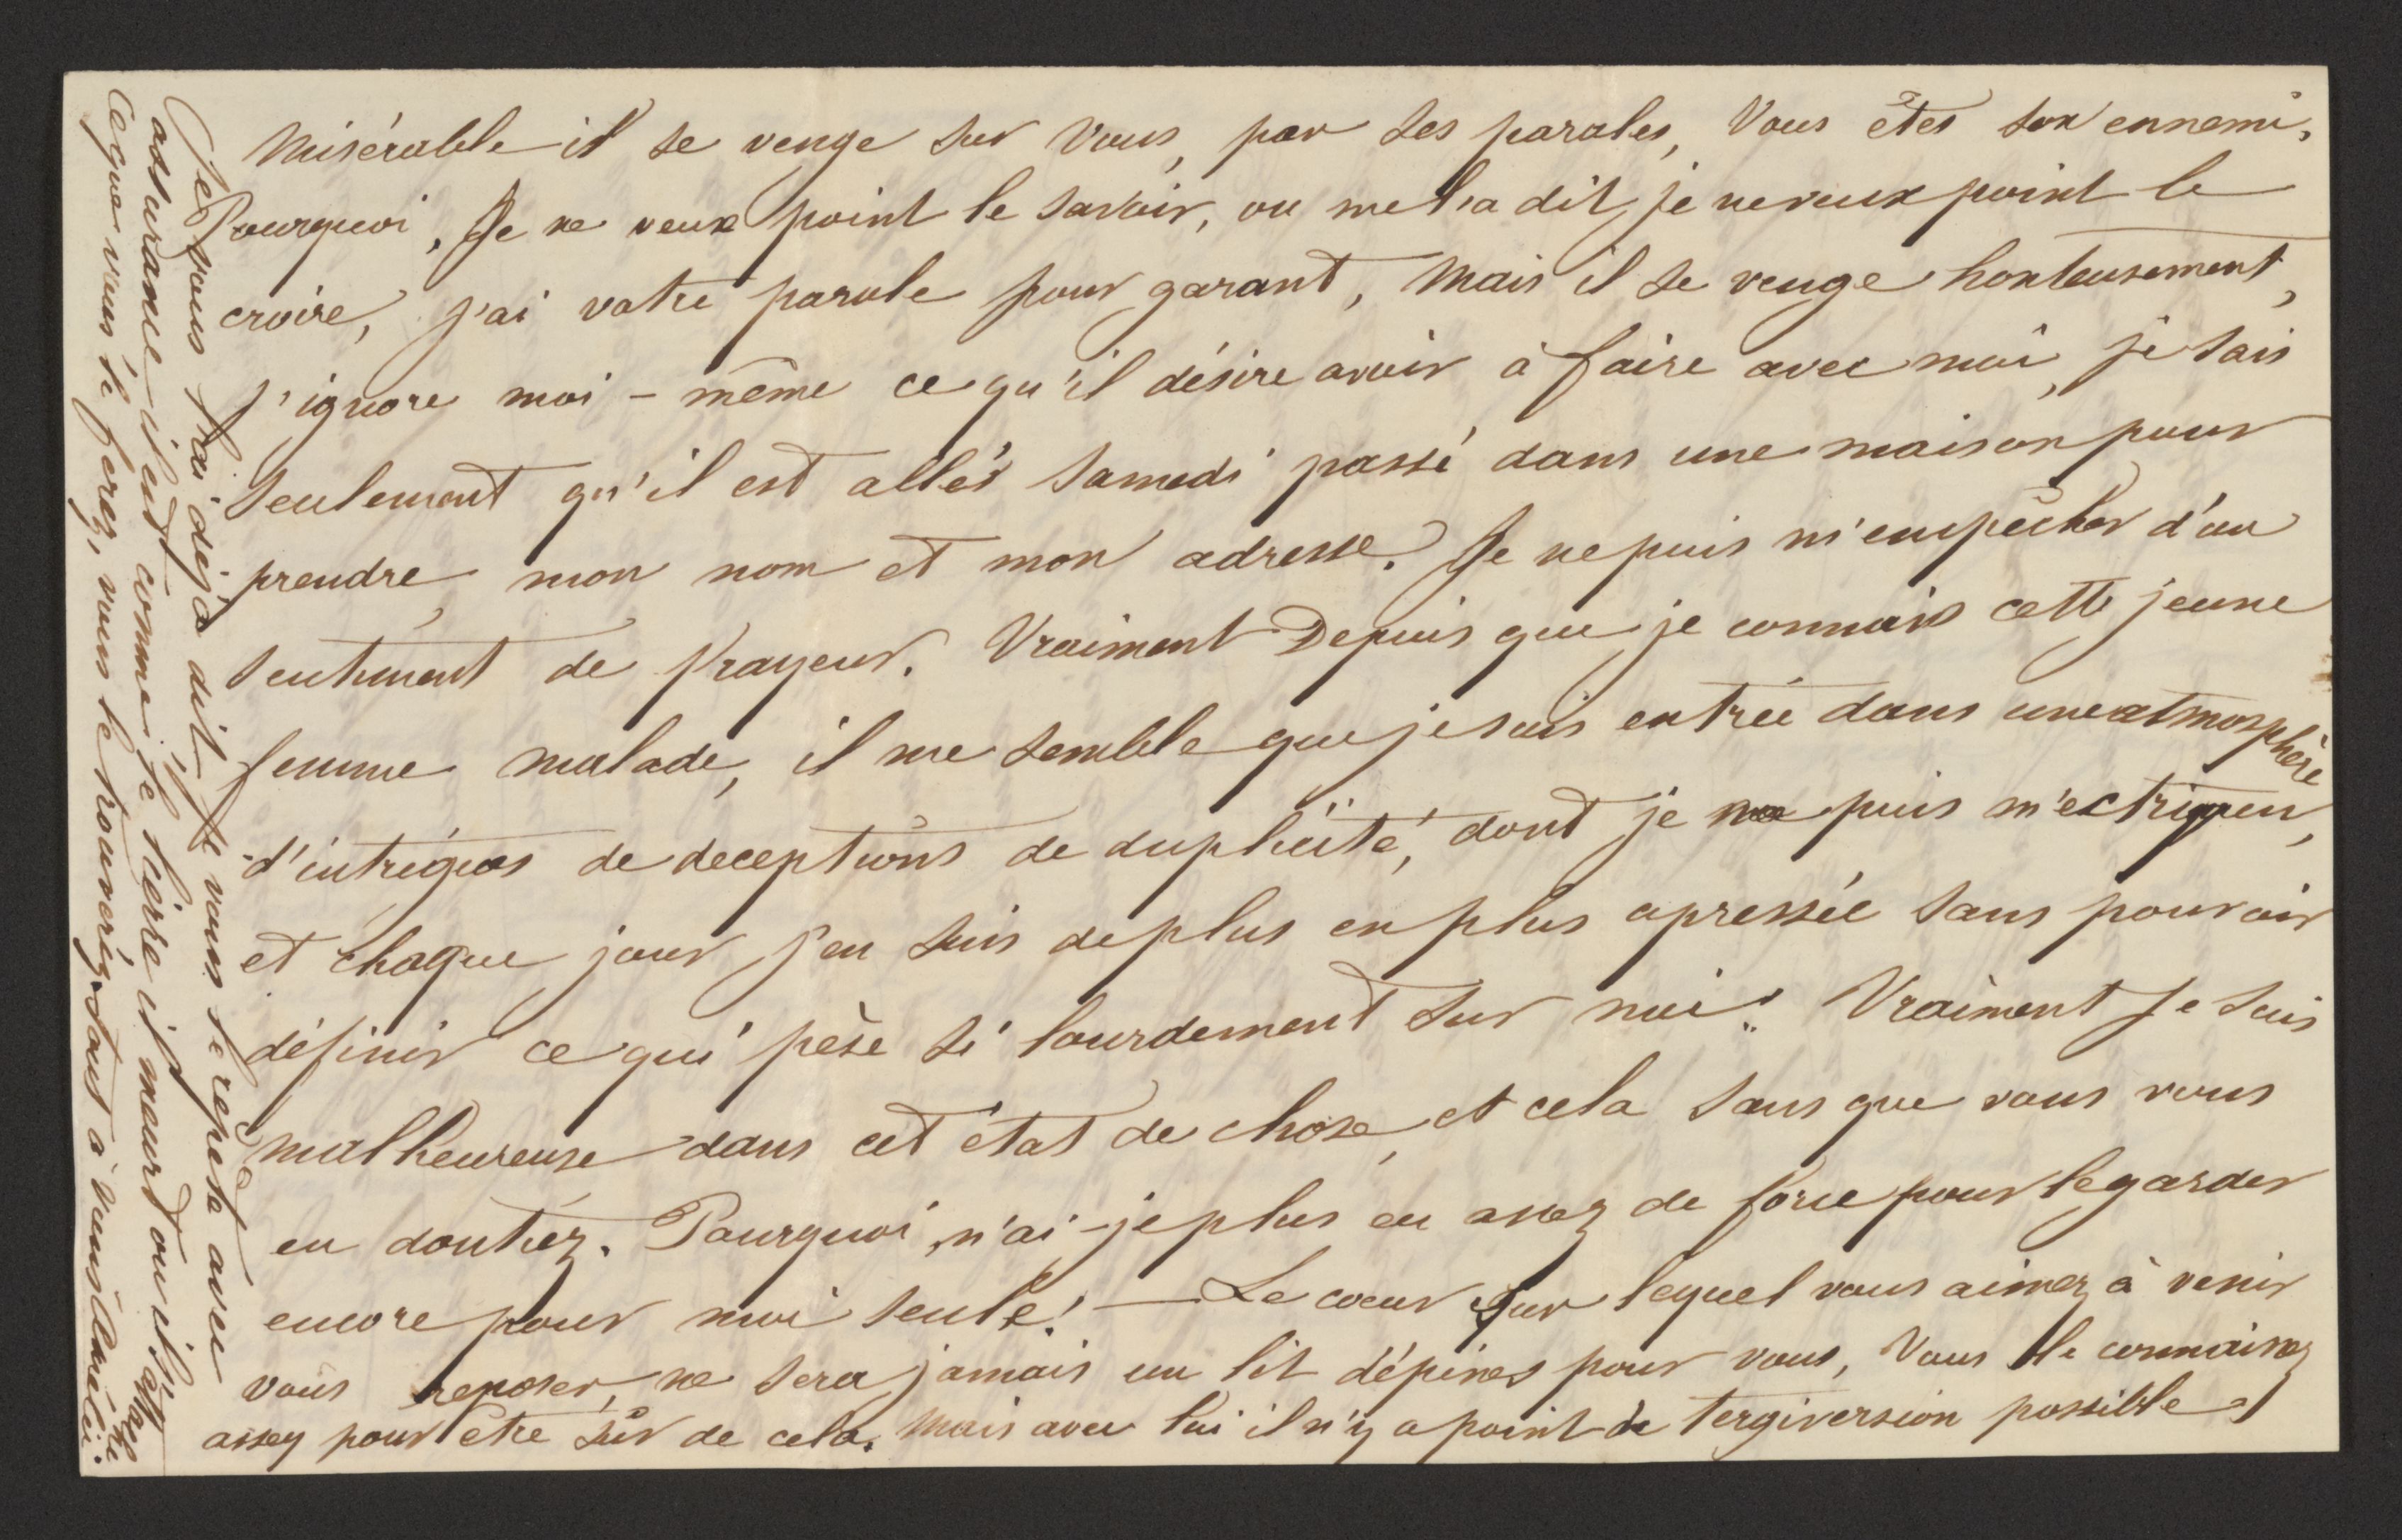 Misérable il se venge sur Vous, par ses paroles, Vous êtes son ennemi,
Pourquoi, Je ne veux point le savoir, on me l'a dit, je ne veux point le
croire, j'ai votre parole pour garant, Mais il se venge honteusement,
j'ignore moi-même ce qu'il désire avoir à faire avec moi, je sais
seulement qu'il est allés samedi passé dans une maison pour
prendre mon nom et mon adresse. Je ne puis m'empêcher d'un
sentiment de frayeur. Vraiment Depuis que je connais cette jeune
femme malade, il me semble que je suis entrée dans une atmosphère
d'intrigues de deceptions de duplicité, dont je ne puis m'
et chaque jour j'en suis de plus en plus opressée sans pouvoir
définir ce qui pèse si lourdement sur moi. Vraiment Je suis
malheureuse dans cet état de chose, et cela sans que vous vous
en doutiez. Pourquoi, n'ai-je plus eu assez de force pour le garder
encore pour moi seule! — Le coeur sur lequel vous aimez à venir
vous reposer, ne sera jamais un lit d'épines pour vous, Vous le connaissez
assez pour être sûr de cela. Mais avec lui il n'y a point de tergiversion possible
Je vous l'ai déjà dit, Je vous le répète avec
assurance il est comme le lierre il meurt ou il s'attache
Ce que vous le ferez, vous le trouverez. Tout à vous